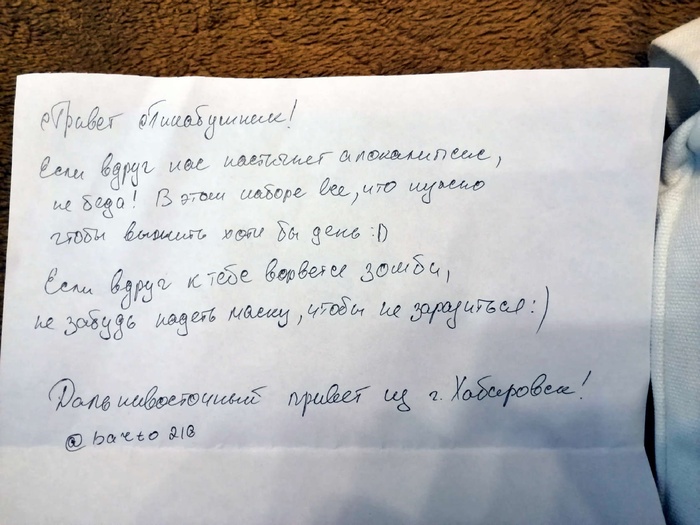 Привет Пикабушник!
Если вдруг нас настигнет апокалипсис,
не беда! В этом наборе все, что нужно
чтобы выжить хотя бы день :D
Если вдруг к тебе ворвется зомби,
не забудь надеть маску, чтобы не заразиться :)
Дальневосточный привет из г. Хабаровск!